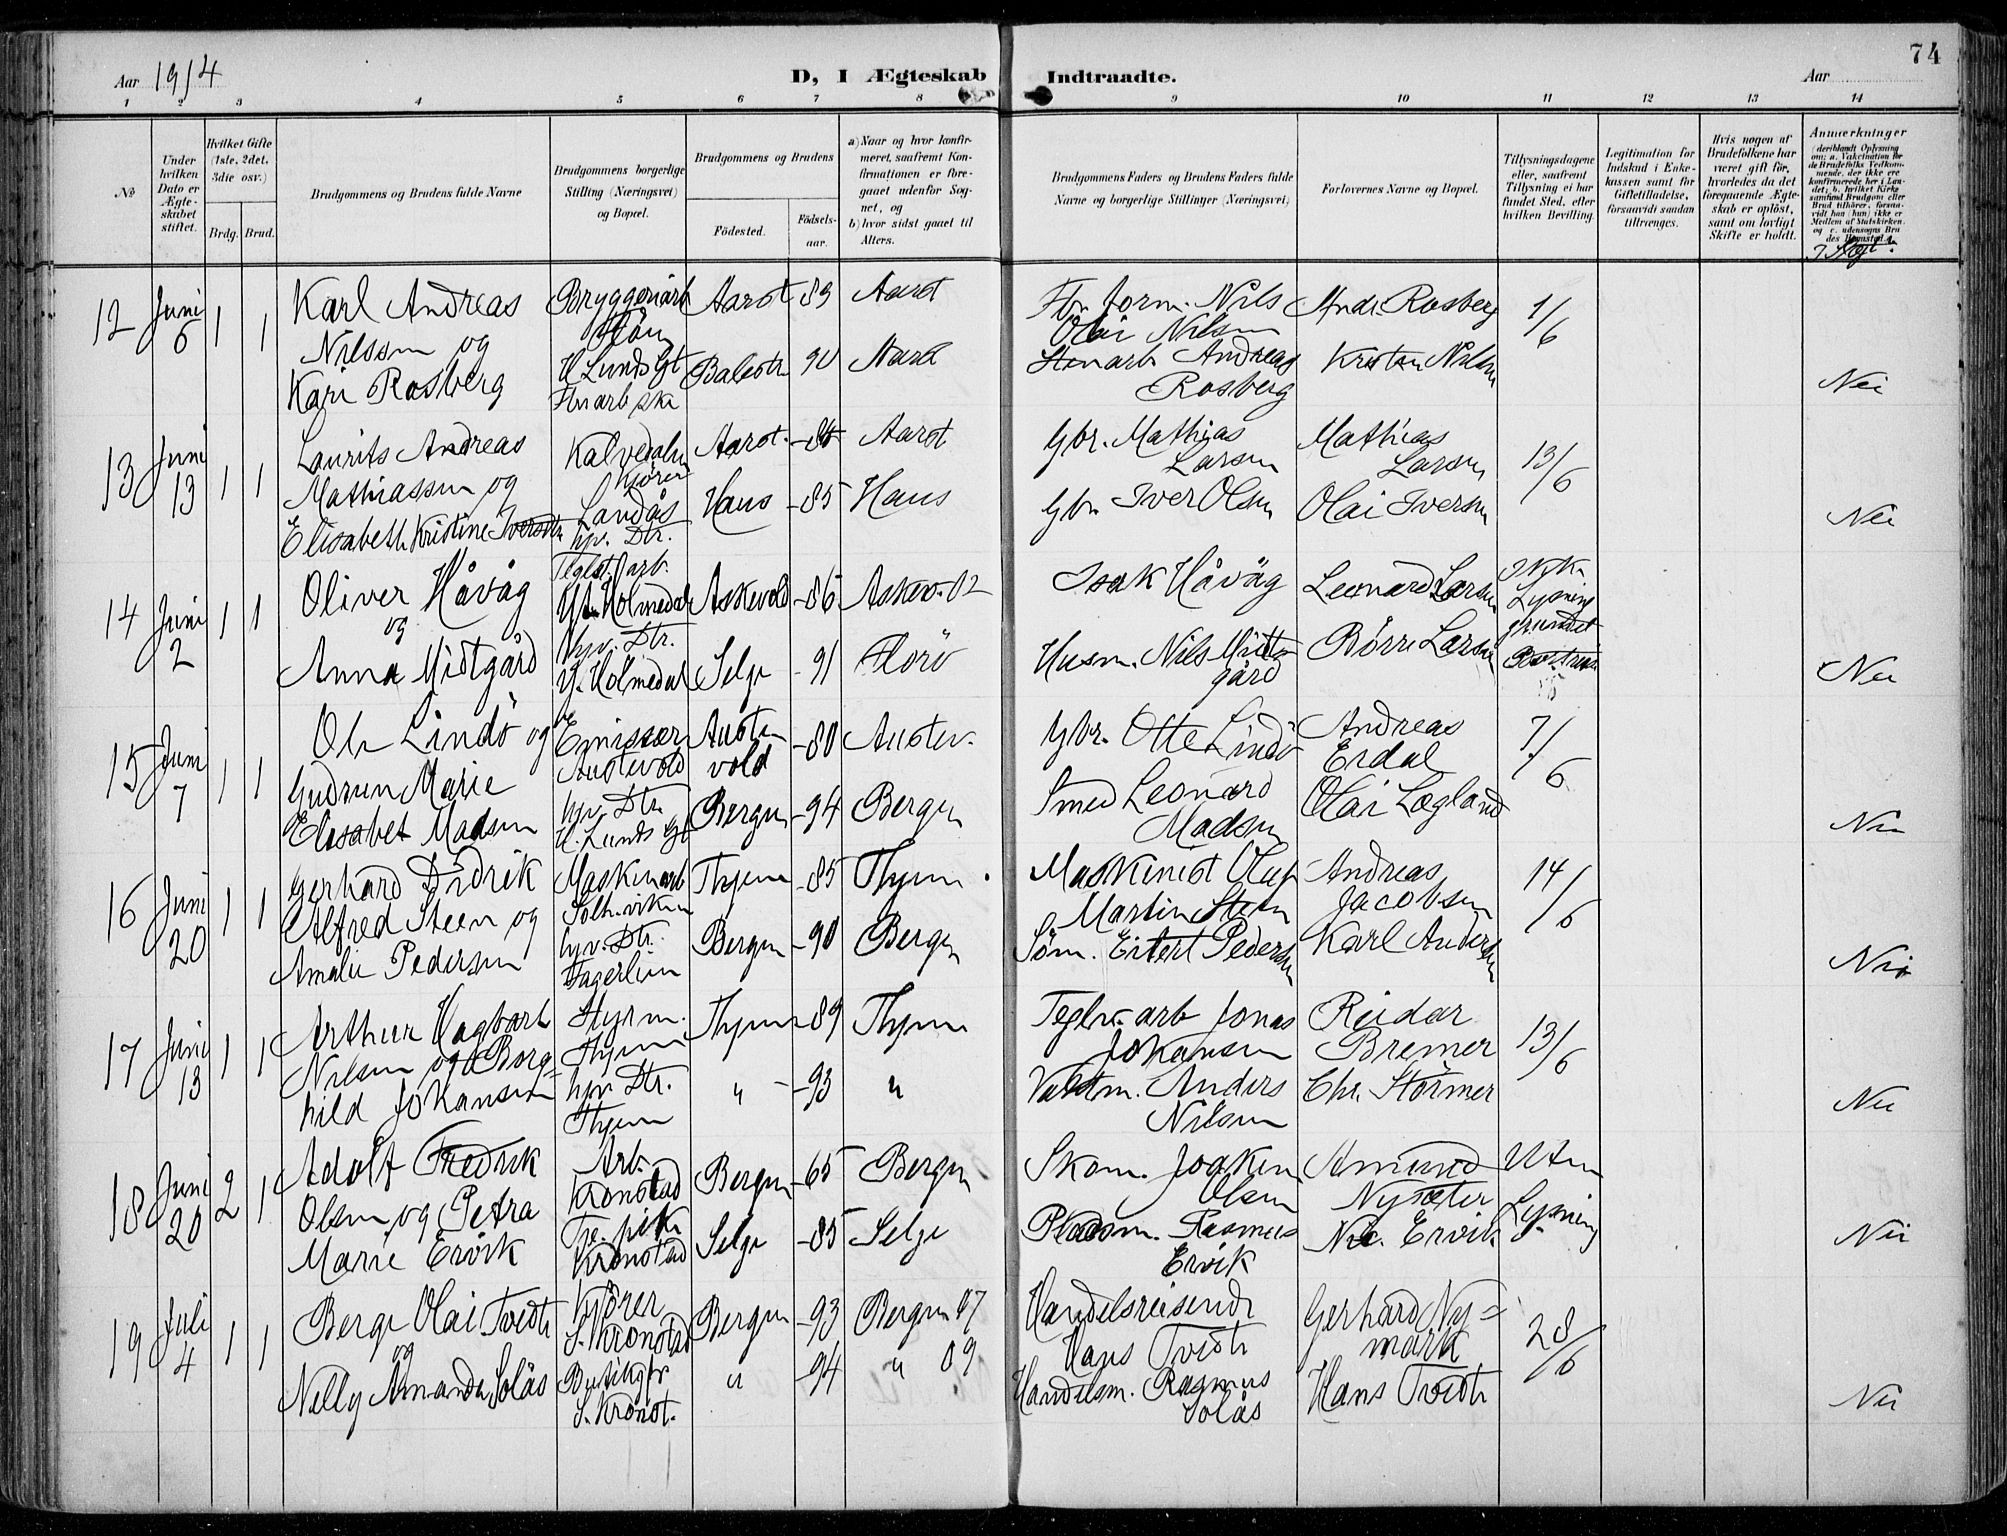 74
Aar 1914
D, I Ægteskab Indtraadte.
Aar
1 2 3 4 5 6 7 8 9 10 11 12 13 14
No
Under hvilken Dato er Ægteskabet stiftet.
Hvilket Gifte (1ste, 2det, 3die osv.)
Brdg. Brud.
Brudgommens og Brudens fulde Navne
Brudgommens borgerlige Stilling (Næringsvei) og Bopæl.
Brudgommens og Brudens
Fødested.
Fødselsaar.
a) Naar og hvor konfirmeret, saafremt Konfirmationen er foregaaet udenfor Sognet, og
b) hvor sidst gaaet til Alters.
Brudgommens Faders og Brudens Faders fulde Navne og borgerlige Stillinger (Næringsvei)
Forlovernes Navne og Bopæl.
Tillysningsdagene eller, saafremt Tillysning ei har fundet Sted, efter hvilken Bevilling.
Legitimation for Indskud i Enkekassen samt for Giftetilladelse, forsaavidt saadan tiltrænges.
Hvis nogen af Brudefolkene har været gift før, hvorledes da det foregaaende Ægteskab er opløst, samt om lovligt Skifte er holdt.
Anmærkninger (deriblandt Oplysning om: a. Vakcination for de Brudefolks Vedkommende, der ikke ere konfirmerede her i Landet; b. hvilket Kirkesamfund Brudgom eller Brud tilhører, forsaavidt han (hun) ikke er Medlem af Statskirken, og c. udensogns Brudes Hjemsted.)
12 Juni 6 1 1
Karl Andreas Nilssen og
Kari Rosberg
H Lunds Gt
Aarst 89 Aarst
Balestr 90
Nils Olai Nilsen
Andreas Rosberg
Andr. Rosberg
Kristen Nilsen
1/6
Nei
13 Juni 13 1 1
Laurits Andreas Mathiassen og
Elisabeth Kristine Iversdtr
Kalvedalen Kjører
Landås hjv. Dtr.
Aarst. Aarst
Haus -85 Haus
Gbr. Mathias Larsen
Gbr. Iver Olsen
Mathias Larsen
Olai Iversen
13/6
Nei
14 Juni 2 1 1
Oliver Håvåg
og
Anna Midtgård
hjv. Dtr.
Y. Holmedal
Askevold -86 Askev. 02
Selje -91 Florö
Isak Håvåg
Husm. Nils Midtgård
Leonard Larsen
Börre Larsen
Lysning grundet
Nei
15 Juni 7 1 1
Ole Lindö og
Gudrun Marie Elisabet Madsen
Emissær Austevold
hjv. Dtr. H. Lunds Gt
Austevold -80 Austev.
Bergen -94 Bergen
Gbr. Otte Lindö
Smed Leonard Madsen
Andreas Erdal
Olai Lægland
7/6
Nei
16 Juni 20 1 1
Gerhard Didrik Alfred Steen og
Amalie Pedersen
Maskinarb Solhsviken
hjv. Dtr. Fagerlien
-85
Bergen -90 Bergen
Maskinist Oluf Martin Steen
Söm. Eilert Pedersen
Andreas Jacobsen
Karl Andersen
14/6
Nei
17 Juni 13 1 1
Arthur Hagbart Nilsen og Borghild Johansen
Styrm.
hjv. Dtr.
-89
" -93 "
Teglv. arb Jonas Johansen
Anders Nilsen
Reidar Bremer
Chr. Störmer
13/6
Nei
18 Juni 20 2 1
Adolf Fredrik Olsen og Petra Marie Ervik
Arb. Kronstad
Tj. pike Kronstad
Bergen -65 Bergen
Selje -85 Selje
Skom. Joakim Olsen
Pladsm. Rasmus Ervik
Amund Nysæter
Ervik
Uten Lysning
Nei
19 Juli 4 1 1
Berge Olai Tvedt
og
Nelly Amanda Solås
Kjörer S. Kronstad
S. Kronst.
Bergen -93 Bergen 07
" -94 " 09
Handelsreisende Hans Tvedt
Handelsm. Rasmus Solås
Gerhard Nymark
Hans Tvedt
28/6
Nei